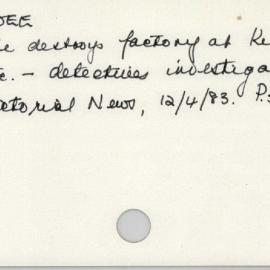 DEE
e destroys factory at Ke
c. – detectives investiga
ctorial News, 12/4/83. P.